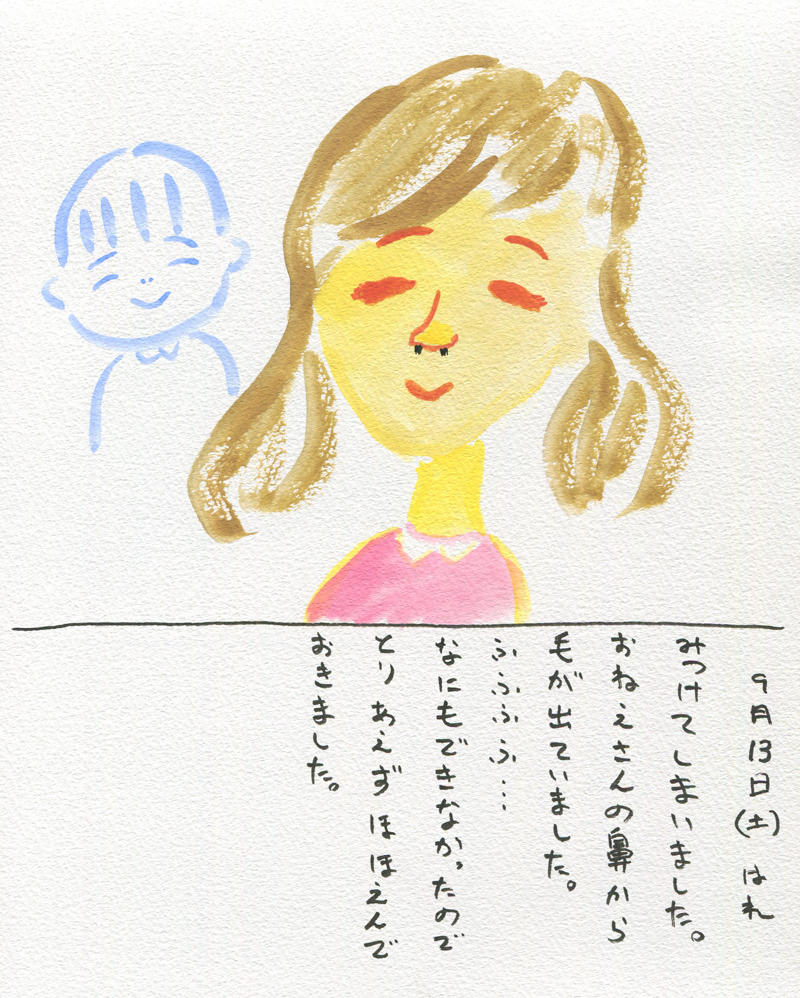 9月13日(土) はれ
みつけてしまいました。
おねえさんの鼻から
毛が出ていました。
ふふふふ…
なにもできなかったので
とりあえず ほほえんで
おきました。